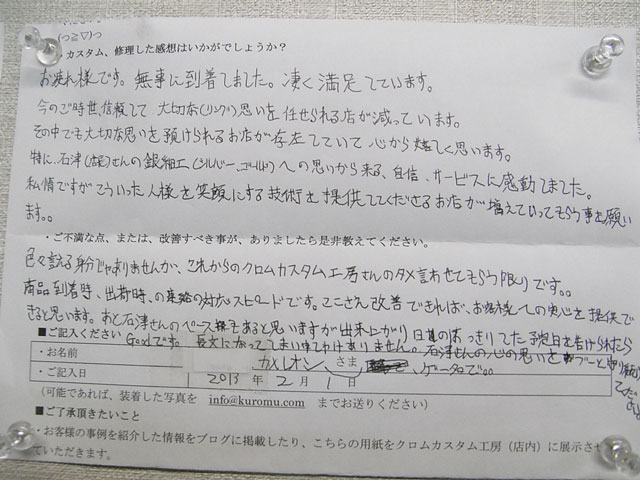 (つ≧▽)つ
・カスタム、修理した感想はいかがでしょうか？
お疲れ様です。無事に到着しました。凄く満足しています。
今のご時世、信頼して 大切な(リング)思いを任せられる店が減っています。
その中でも大切な思いを預けられるお店が存在していて心から嬉しく思います。
特に、石津(雄)さんの銀細工(シルバー、ゴールド)への思いから来る、自信、サービスに感動しました。
私情ですがこういった人様を笑顔にする技術を提供してくださるお店が増えていってもらう事を願い
ます。。
・ご不満な点、または、改善すべき事が、ありましたら是非教えてください。
色々言える身分じゃありませんが、これからのクロムカスタム工房さんのタメ言わせてもらう限りです。。
商品到着時、出荷時、の連絡の対応スピードです。ここさえ改善できれば、お客様への安心を提供で
きると思います。あと石津さんのペース等もあると思いますが出来上がり日ははっきりした予定日を告げられたら
Goodです。 長文になってしまい申しわけありません。石津さんの心の思いを
■ご記入ください
・お名前 カメレオン さま
・ご記入日 2013 年 2 月 1 日
(可能であれば、装着した写真を info@kuromu.com までお送りください)
■ご了承頂きたいこと
・お客様の事例を紹介した情報をブログに掲載したり、こちらの用紙をクロムカスタム工房（店内）に展示させ
ていただきます。